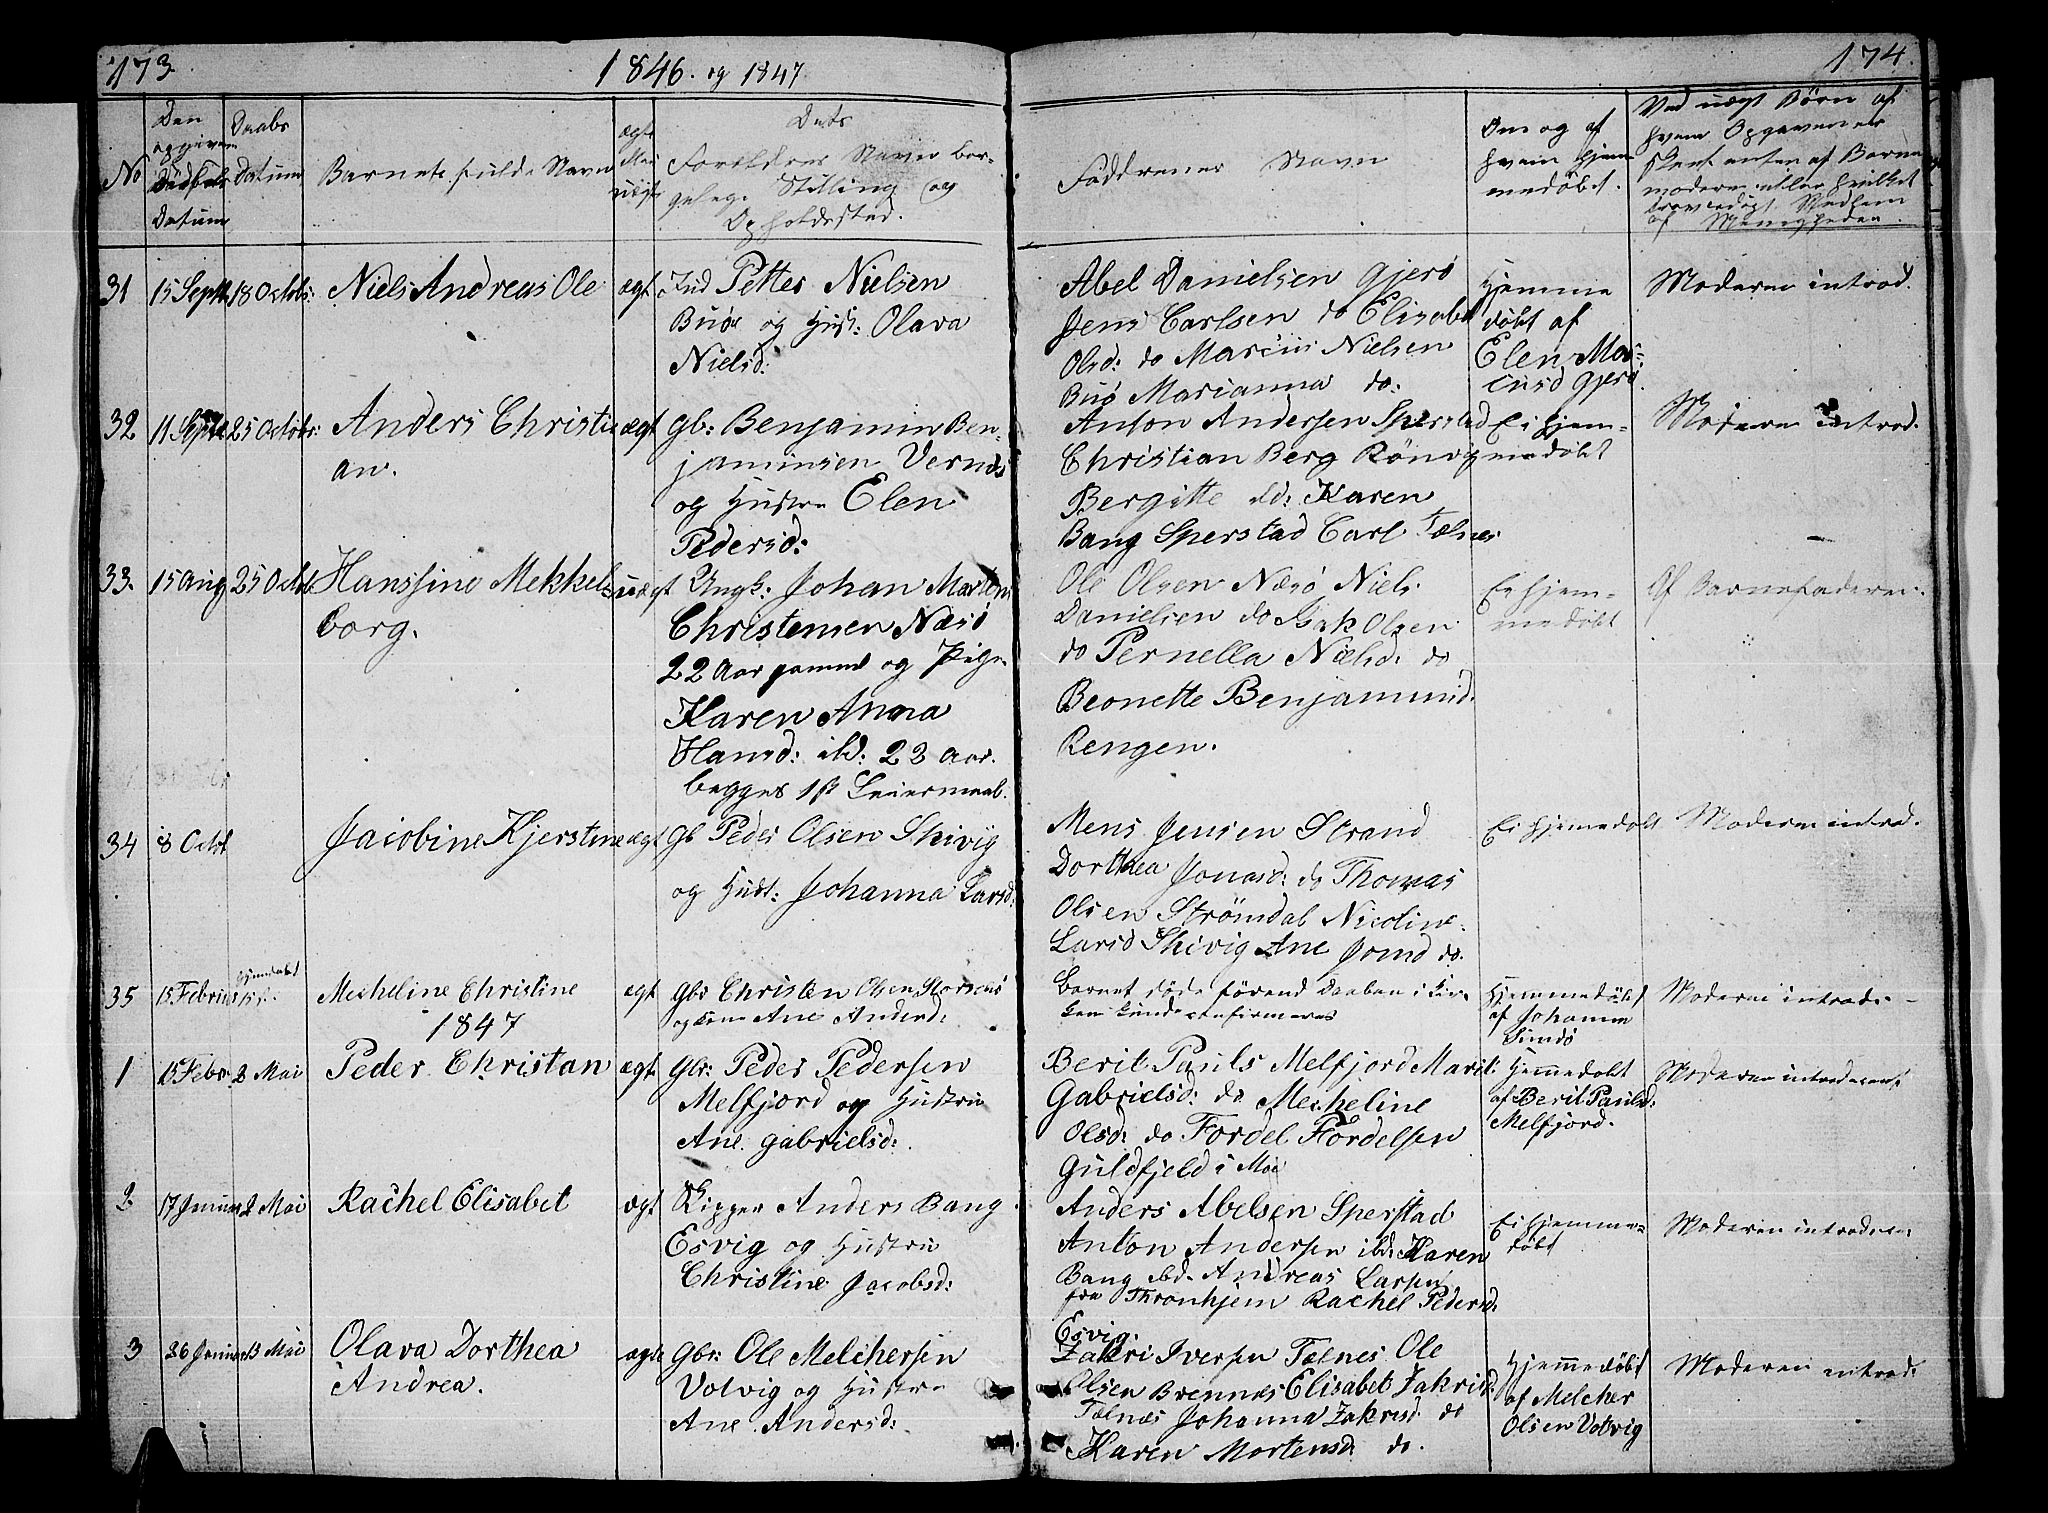 173
1846. og 1847
174.
No
Den opgivne Födsels Datum
Daabs Datum
Barnets fulde Navn
ægte eller uægte
Dets Forældres Navn borgelige Stilling og Opholdssted.
Faddrenes Navn
Om og af hvem hjemmedöbt.
Ved uægt Börn af hvem Opgaven er skeet enten af Barnemoderen eller hvilket troværdigt Medlem af Menigheden.
31 15 Septb 18 Octobr: Niels Andreas Ole ægt Ind Petter Nielsen
Buöe og Hust: Olava
Nielsd:
Abel Danielsen Gjerö
Jens Carlsen do Elisabet
Olsd: do Marcus Nielsen
Buö Marianna do:
Hjemme
döbt af
Elen Mar-
cusd Gjerö.
Moderen introd.
32 11 Septb 25 Octobr: Anders Christi
an.
ægt gb: Benjamin Ben-
jaminsen Vernes
og Hustru Elen
Pedersd:
Anton Andersen Sperstad
Christian Berg Rönvig
Bergitte ibd: Karen
Bang Sperstad Carl Telnes
Ei hjem-
medöbt
Moderen introd.
33. 15 Aug 25 Octbr Hanssine Mekkel-
borg.
uægt Ungk: Johan Morten
Christensen Næsö
22 Aar gammel og Pige
Karen Anna
Hansd: ibd: 23 Aar.
begges 1st Leiermaal.
Ole Olsen Næsö Niels
Danielsen do Isak Olsen
do Pernella Nielsd: do
Beonette Benjamind.
Rengen.
Ei hjem-
medöbt
Af Barnefaderen.
34 8 Octbr Jacobine Kjerstine ægt gb Peder Olsen Skivig
og Hust: Johanna Larsd:
Mens Jensen Strand
Dorthea Jonasd: do Thomas
Olsen Strömdal Nicoline
Larsd Skivig Ane Jonsd do.
Ei hjemedöbt
Moderen introd.
35 15. Februar hjemedöbt Mecheline Christine ægt gbr Christen Olsen Storsenö
og Kone Ane Andersd:
Barnet döde förend Daaben i Kir-
ken kunde confirmeres
Hjemmedöbt
af Johanna
Sundö
Moderen introd.
1847
1 15 Febr 2 Mai Peder Christan ægt. Gbr: Peder Pedersen
Melfjord og Hustru
Ane Gabrielsd:
Berit Pauls Melfjord Marit
Gabrielsd: do Mecheline
Olsd: do Fordel Fordelsen
Guldfjeld i Moe
Hjemmedöbt
af Berit Paulsd:
Melfjord.
Moderen introduceret
2 17 Januar 2 Mai Rachel Elisabet ægt Skipper Anders Bang
Esvig og Hustru
Christine Jacobsd:
Anders Abelsen Sperstad
Anton Andersen ibd: Karen
Bang ibd. Andreas Larsen
fra Thronhjem Rachel Pedersd:
Esvig.
Ei hjemme-
döbt
Moderen introduceret
3 26 Januar 13 Mai Olava Dorthea
Andrea.
ægte Gbr: Ole Melchersen
Votvig og Hustru
Ane Andersd:
Zakri Iversen Telnes Ole
Olsen Brennes Elisabet Zakrisd:
Telnes Johanna Zakrisd. do
Karen Mortensd do.
Hjemmedöbt
af Melcher
Olsen Votvig
Moderen introd: